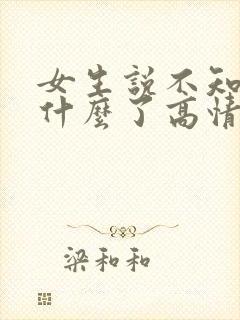 女生説不知
什麼了高情
梁和和